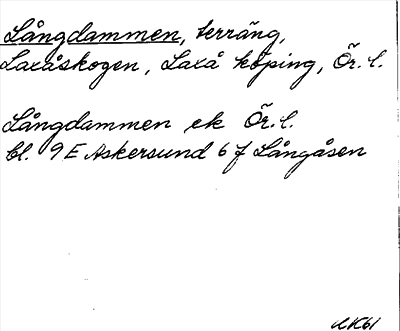 Långdammen, terräng,
Laxåskogen, Laxå köping, Ör. l.
Långdammen ek Ör. l.
bl. 9 E Askersund 6 f Långåsen